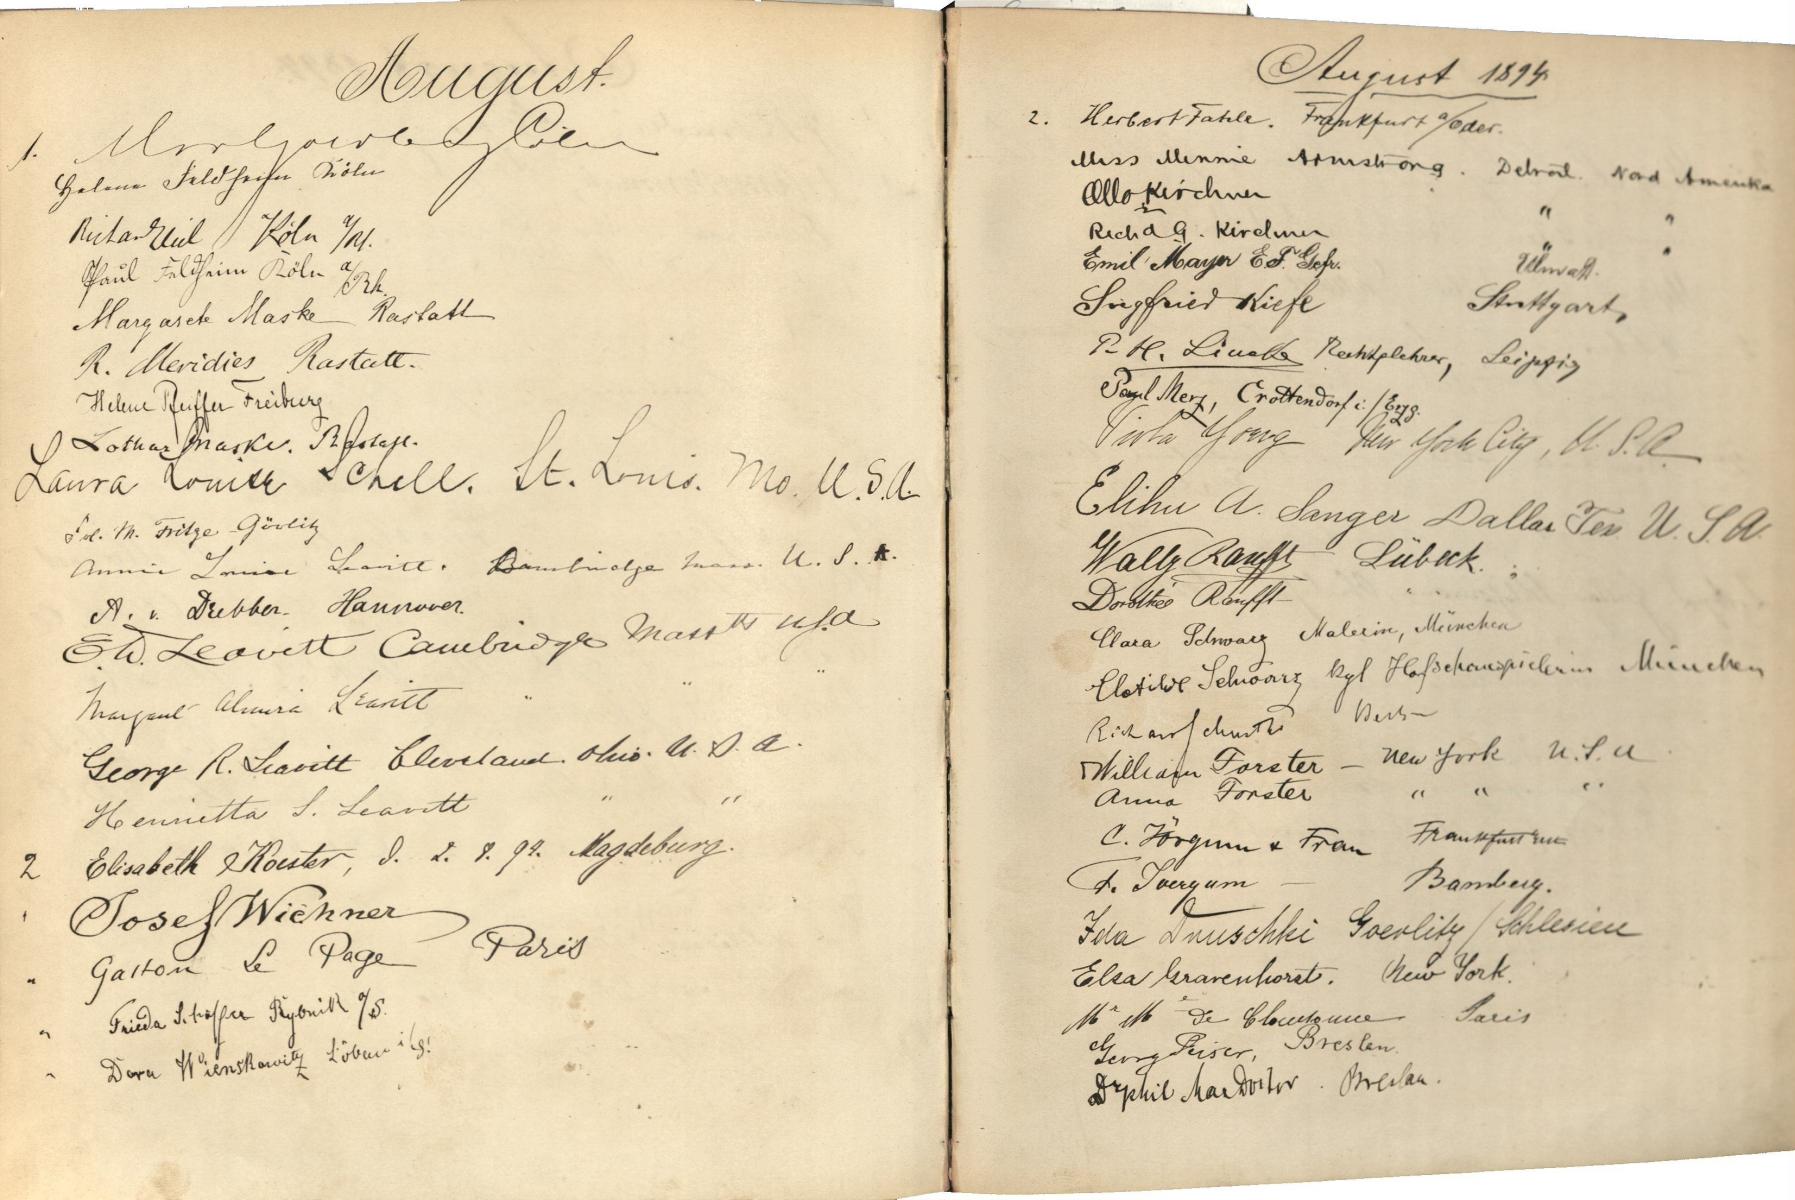 August.
1.
Helene Feldheim Köln
Köln a/Rh.
Paul Feldheim Köln a/Rh.
Margarete Maske Rastatt
R. Meridies Rastatt.
Helene Pfeiffer Freiburg
Lothar Maske. Rastatt.
Laura Louise Schell. St. Louis. Mo. U.S.A.
M. Fritze Görlitz
Annie Louise Leavitt. Cambridge Mass. U. S. A.
A. v. Drebber. Hannover.
E. W. Leavitt Cambridge Masstts USA
Margaret Almira Leavitt " " "
George R. Leavitt Cleveland. Ohio. U. S. A.
Henrietta S. Leavitt " "
2 Elisabeth Koester, d. 2. 8. 94. Magdeburg.
' Josef Wichner
" Gaston Le Page Paris
" Frieda Schäffer Rybnik O/S.
" Dora Wienskowitz Löbau
August 1894
2. Herbert Fahle. Frankfurt a/Oder.
Miss Minnie Armstrong. Detroit. Nord Amerika
Otto Kirchner " "
Richd G. Kirchner "
Emil Mayer Ulm
Siegfried Kiefe Stuttgart,
P. H. Lincke Leipzig
Paul Merz, Crottendorf i./Erzg.
Viola Young New York City, U.S.A.
Elihu A. Sanger Dallas Tex U. S. A.
Wally Ranfft Lübeck.
Dorothee Ranfft "
Clara Schwarz Malerin, München
Clotilde Schwarz kgl Hofschauspielerin München
Richard Schultz Berlin
William Forster – New York U.S.A
Anna Forster " " "
C. Jörgum & Frau Frankfurt
F. Joergum – Bamberg.
Ida Druschki Goerlitz / Schlesien
Elsa Gravenhorst. New York.
Mr Me de Paris
Georg Peiser, Breslau.
Dr phil Max Doctor. Breslau.